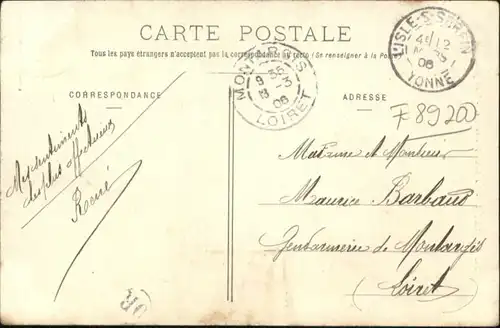 CARTE POSTALE
Tous les pays étrangers n'acceptent pas la correspondance au recto (Se renseigner à la Poste)
MONTARGIS
9 35
13 -3
06
LOIRET
L'ISLE-S-SEREIN
12
06
YONNE
CORRESPONDANCE
ADRESSE
F 89200
Mes sentiments
les plus affectueux
René
Madame et Monsieur
Maurice Barbaud
Gendarmerie de Montargis
(Loiret)